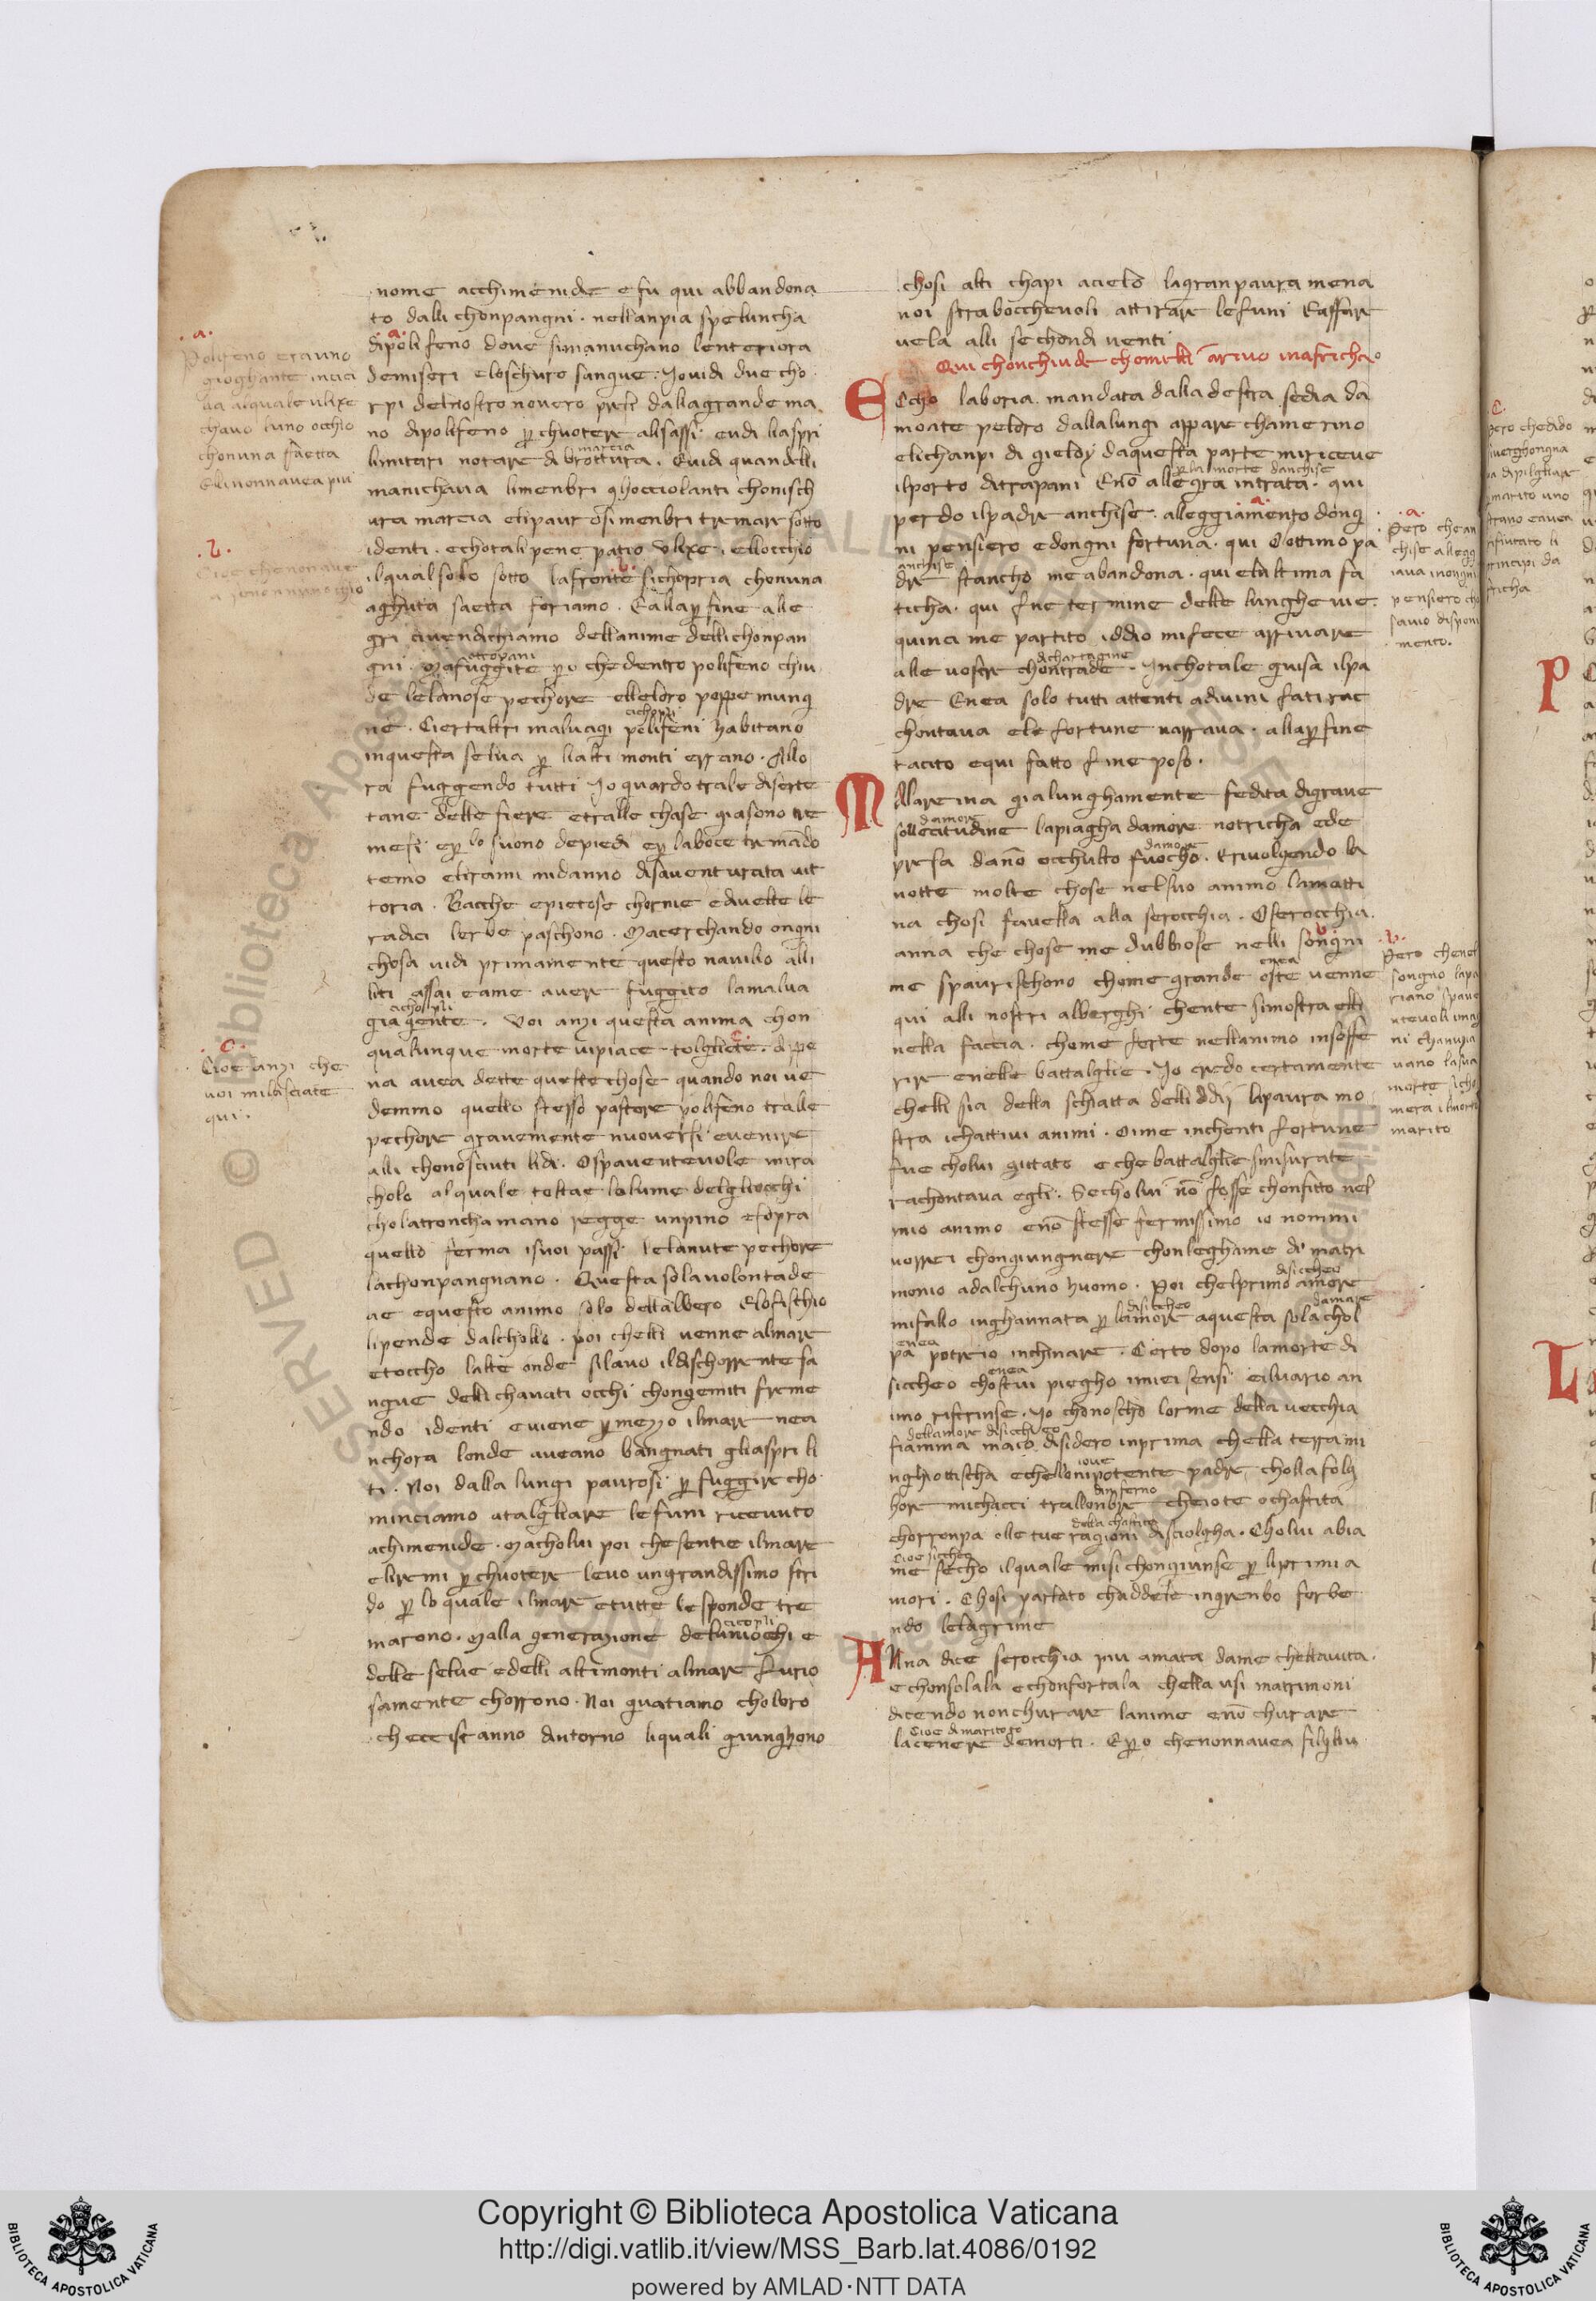 nome acchimenide e fu qui abbandona
to dalli chonpangni. nell anpia speluncha
dipolifeno dove simanuchano lenteriora
demiseri eloschuro sangue. Jovidi due cho
rpi delnostro novero presi dallagrande ma
no dipolifeno ꝑ chuotere alisassi. evidi liaspri
limitari notare di brottura. Evidi quandelli
marcia
manichava limenbri ghocciolanti chonisch
ura marcia elipaurosi menbri tremare sotto
identi. echotali pene patio Ulixe. ellocchio
ilqual solo sotto lafronte sichopria chenuna
aghuta saetta foriamo. Ealla ꝑ fine alle
gri civendichiamo dellanime dellichonpan
gni. Mafuggite ꝑ o che dentro polifeno chiu
de lelanose pechore elleloro poppe mung
ne. Ciertaltri malvagi polifeni habitano
inquesta selva ꝑ lialti monti errano. Allo
ra fuggendo tutti Jo guardo trale diserte
tane delle fiere etralle chase gia sono tre
mesi e ꝑ lo suono depiedi e ꝑ laboce tremādo
temo elirami midanno disaventurata vit
toria. Bacche epietose chornie edivelte le
radici lerbe paschono. Macerchando ongni
chosa vidi primamente questo navilio alli
liti assai eame avere fuggito lamalva
gia gente. Voi anzi questa anima chon
qualunque morte vipiace tolgliete. Appe
na avea dette queste chose quando noi ve
demmo quello stesso pastore polifeno tralle
pechore gravemente muoversi evenire
alli chonosciuti lidi. O spaventevole mira
cholo alquale toltae lolume delgliocchi
cholatroncha mano regge unpino esopra
quello ferma isuoi passi. lelanute pechore
lachonpangnano. Questa sola volontade
ae equesto animo solo dellalbero Elofischio
lipende dalchollo. poi chelli venne almare
etoccho lalte onde silavo ildischorrente sa
ngue delli chavati occhi chongemiti freme
ndo identi eviene ꝑ mezzo ilmare nea
nchora londe aveano bangnati gliaspri li
ti. Noi dalla lungi paurosi ꝑ fuggire cho
minciamo atalgliare lefuni ricevuto
achimenide. Macholui poi chesentie ilmare
eliremi ꝑ chuotere levo ungrandissimo stri
do ꝑ lo quale ilmare etutte le sponde tre
marono. Malla generazione
delle selve edelli altimonti almare furio
samente chorrono. Noi guatiamo choloro
checcistanno dintorno liquali giunghono
.a.
Polifeno era uno
gioghante incici
lia alquale ulixe
chavo luno occhio
chonuna saetta
Elinonnavea piu
.b.
Cioe chenonave
.c.
Cioe anzi che
voi milasciate
qui.
chosi alti chapi acielo lagranpaura mena
noi straboccchevoli attirare lefuni Eaffare
vela alli sechondi venti
Qui chonchiude chomelli arivo inafricha
Echo laboria. mandata dalla destra sedia da
moate peloro dallalungi appare chamerino
elichanpi di gieloy daquesta parte miriceve
ꝑ la morte danchise
ilporto ditrapani Enō allegra intrata. qui
perdo ilpadre anchise. alleggiamento dong
ni pensiero edongni fortuna. qui Oottimo pa
anchise
dre stancho me abandona. qui elultima fa
ticha. qui fue termine delle lunghe vie.
quinci me partito iddio mifece arrivare
dichartagine
alle vostre chontrade. Inchotale guisa ilpa
dre Enea solo tutti attenti adivini fati rac
chontava ele fortune narrava. alla ꝑ fine
tacito equi fatto fine poso.
Mallareina gialunghamente fedita digrave
damore
sollecitudine lapiagha damore notricha ede
damore
presa danō occhulto fuocho. Rivolgendo la
notte molte chose nelsuo animo lamatti
na chosi favella alla serocchia. O serocchia.
anna che chose me dubbiose nelli songni
enea
me spaurischono chome grande oste venne
qui alli nostri alberghi chente simostra elli
nella faccia. chome forte nellanimo insoffe
rire enelle battalglie. Jo credo certamente
chelli sia della schiatta delli ddij lapaura mo
stra ichattivi animi. Oime inchenti fortune
fue cholui gittato e che battalglie smisurate
rachontava egli. Secholui nō fosse chonfitto nel
mio animo enō stesse fermissimo io nommi
vorrei chongiungnere chonleghame di matri
monio adalchuno huomo. Poi chelprimo amore
disiccheo
mifallo inghannata ꝑ lamore aquesta sola chol
enea
pa potreio inchinare. Certo dopo lamorte di
enea
siccheo chostui piegho imiei sensi eilvario an
imo ristrinse. Jo chonoscho lorme della vecchia
dellamore disiccheo
fiamma maio disidero inprima chella terra mi
iove
nghiottischa echellonipotente padre cholla folg
dinferno
hore michacci trallonbre cheiote ochastita
della chastita
chorronpa olle tue ragioni disciolgha. Cholui abia
Cioe siccheo
me secho ilquale misi chongiunse ꝑ liprimi a
mori. Chosi parlato chaddele ingrenbo forbe
ndo lelagrime
Anna dice serocchia piu amata dame chellavita.
echonsolala echonfortala chella usi matrimoni
dicendo nonchurare lanime enō churare
lacenere demorti. E ꝑ o chenonnavea filgliu
.a.
Pero chean
chise allegg
iava inongni
pensiero cho
savio disponi
mento.
.b.
Pero chenel
songno lapa
riano spave
ntevoli imag
morte
marito
.c.
pero chedido
marito uno
principi da
fricha
P
L
Copyright © Biblioteca Apostolica Vaticana
http://digi.vatlib.it/view/MSS_Barb.lat.4086/0192
powered by AMLAD·NTT DATA
BIBLIOTECA APOSTOLICA VATICANA
BIBLIOTECA APOSTOLICA VATICANA